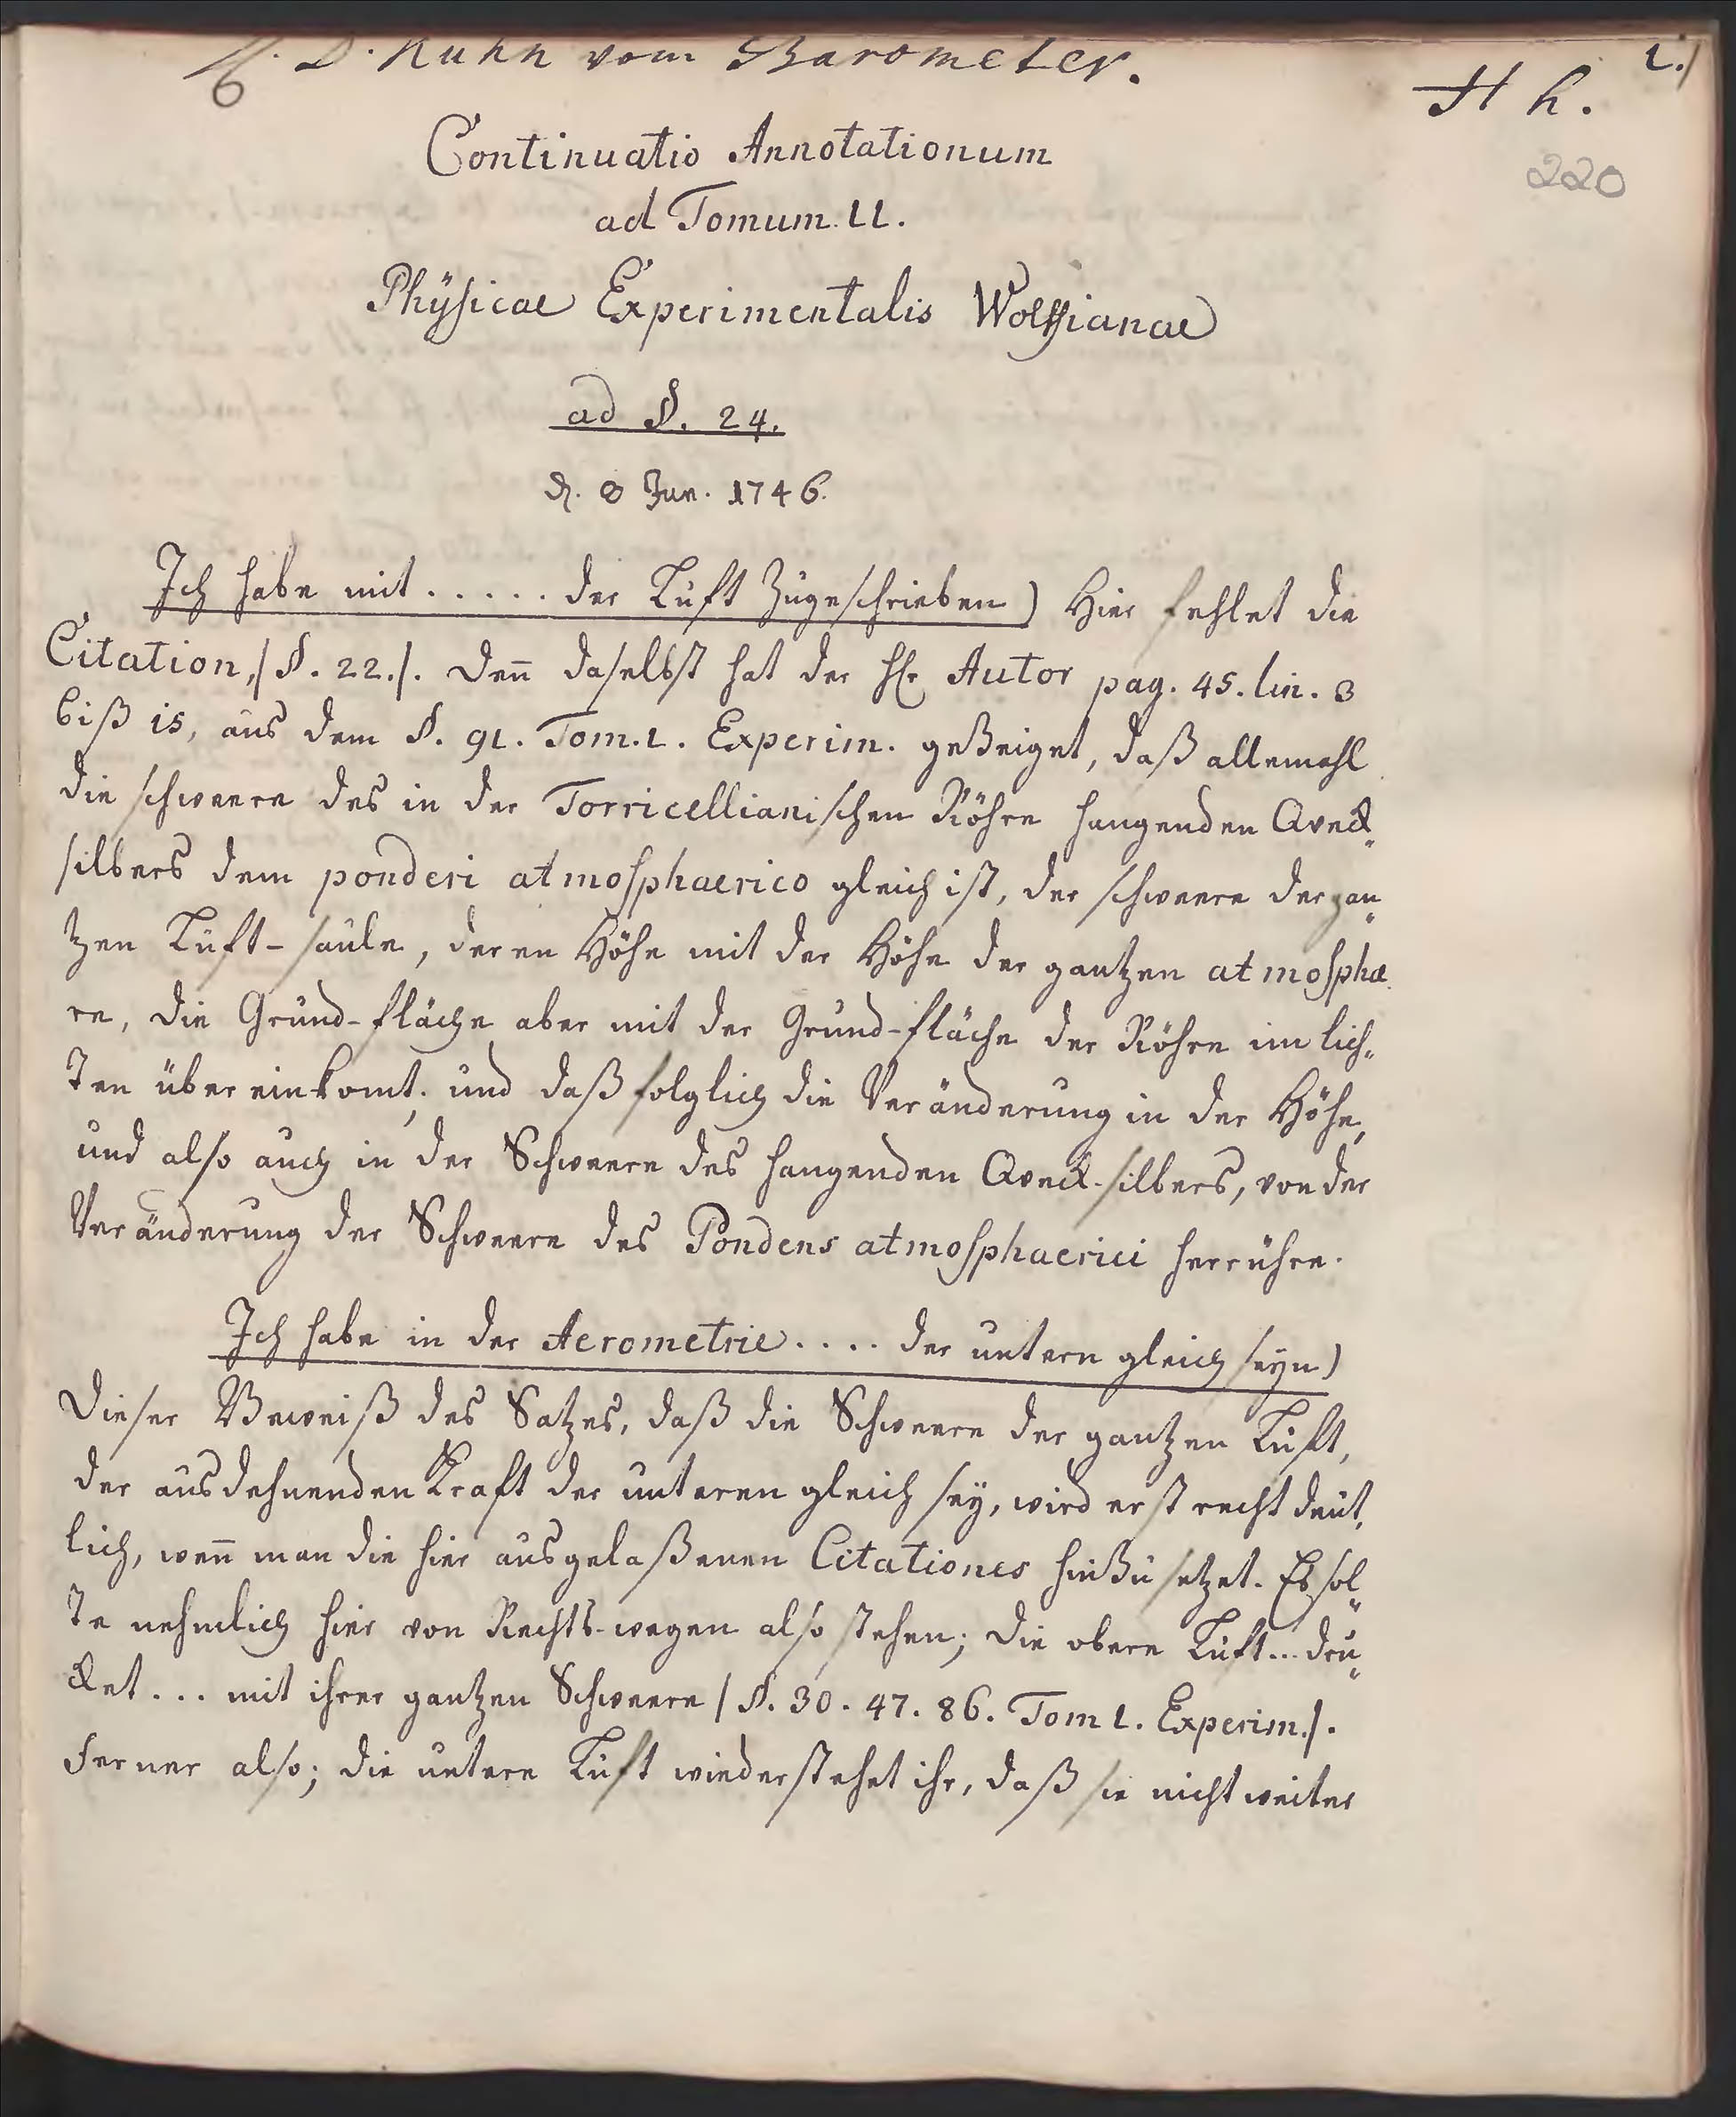 D. Kuhn vom Barometer.
1.)
H h.
220
Continuatio Annotationum
ad Tomum. II.
Physicae Experimentalis Wolffianae
ad §. 24.
d. 8 Jun. 1746.
Ich habe mit ..... der Luft zugeschrieben) Hier fehlet die
Citation, /§. 22./. Denn daselbst hat der H. Autor pag. 45. lin. 3
biß 15, aus dem §. 91. Tom. 1. Experim. gezeiget, daß allemahl
die schweere des in der Torricellianischen Röhre hangenden Qveck-
silbers dem ponderi atmosphaerico gleich ist, der schweere der gan-
tzen Luft-saule, deren Höhe mit der Höhe der gantzen atmosphae-
re, die Grund-fläche aber mit der Grund-fläche der Röhre im lich-
ten übereinkomt; und daß folglich die Veränderung in der Höhe,
und also auch in der Schweere des hangenden Qveck-silbers, von der
Veränderung der Schweere des Ponderis atmosphaerici herrühre.
Ich habe in der Aerometrie .... der untern gleich seyn)
Dieser Beweiß des Satzes, daß die Schweere der gantzen Luft,
der ausdehnenden Kraft der unteren gleich sey, wird erst recht deut-
lich, wenn man die hier ausgelaßenen Citationes hinzu setzet. Es sol-
te nehmlich hier von Rechts-wegen also stehen; die obere Luft ... dru-
cket ... mit ihrer gantzen Schweere /§. 30. 47. 86. Tom 1. Experim./.
Ferner also; die untere Luft wiederstehet ihr, daß sie nicht weiter